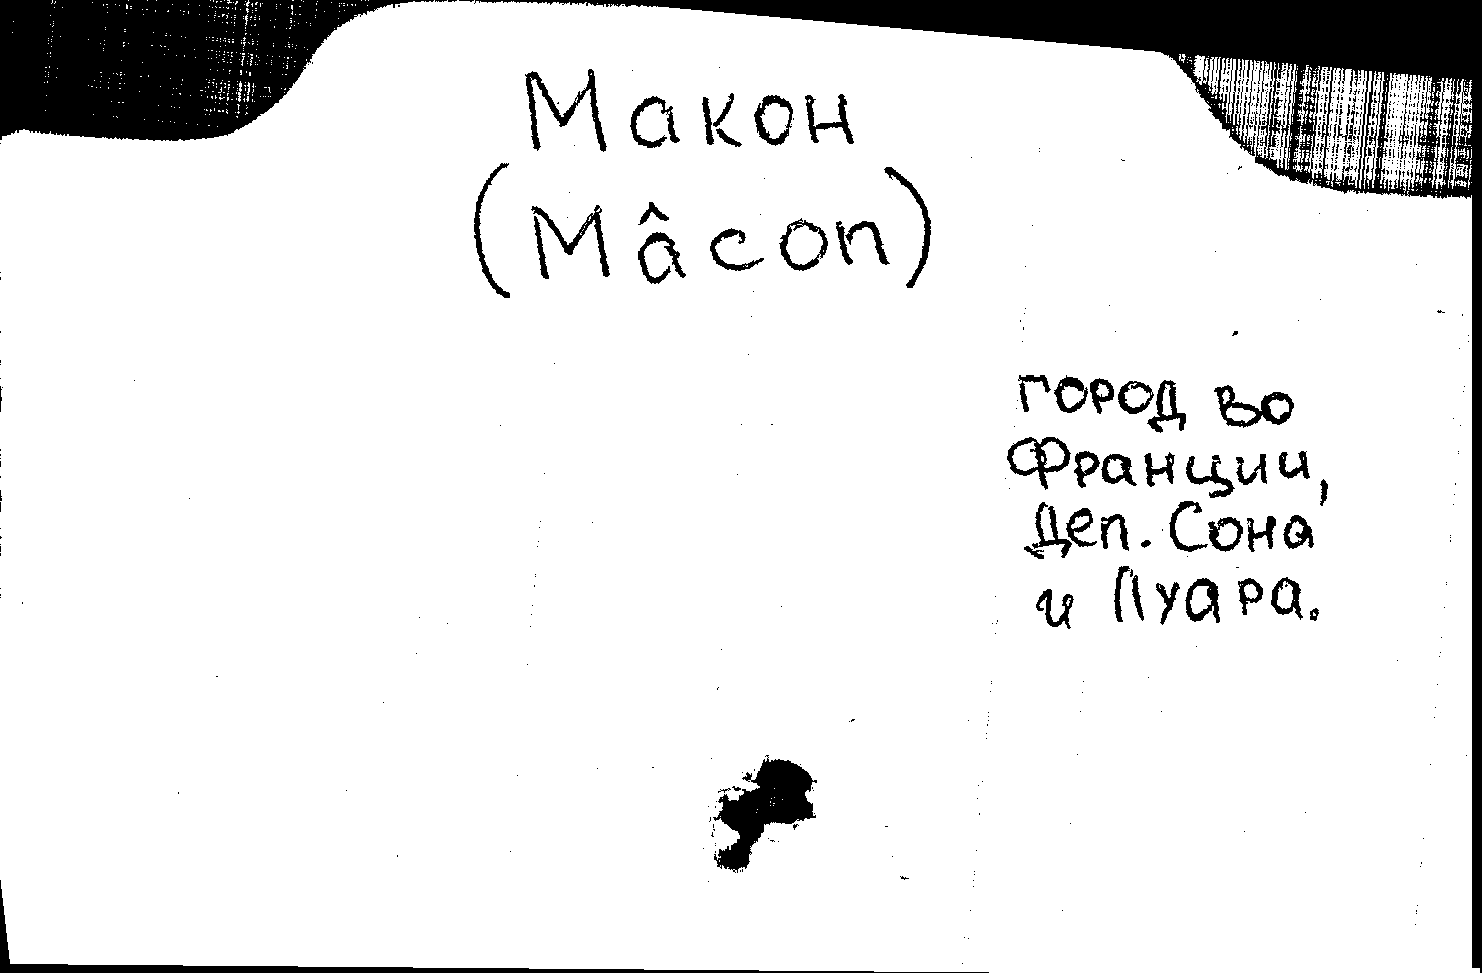 Макон
(Mâcon)
город во
Франции,
Деп. Сона
и Луара.